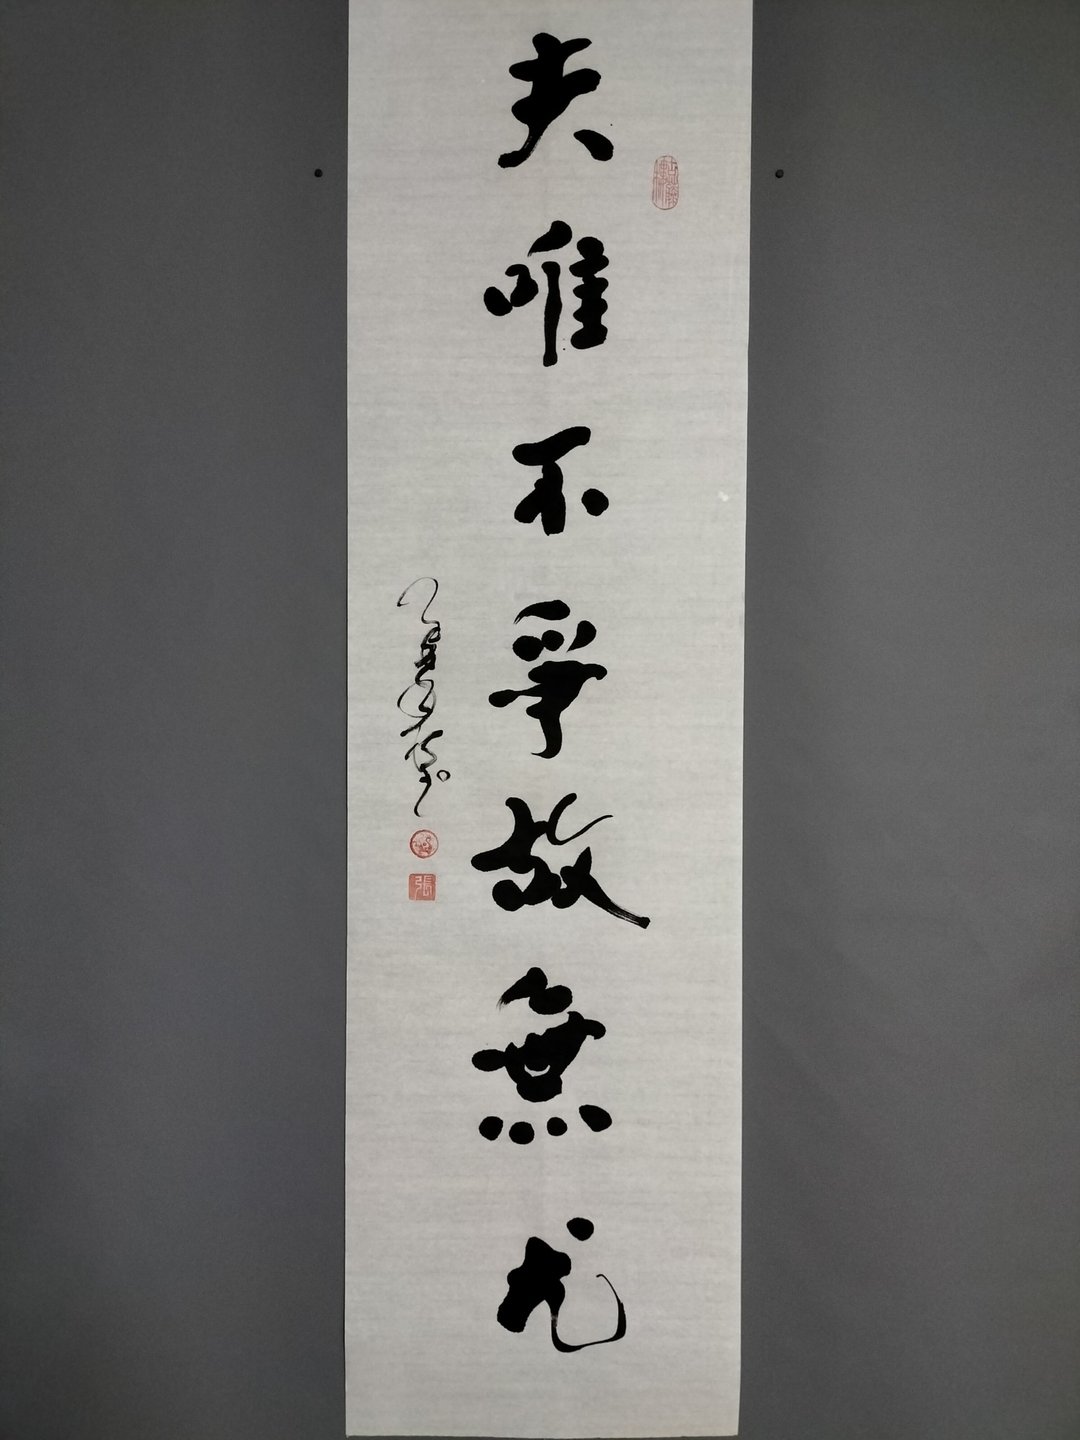 夫唯不爭故無尤
張